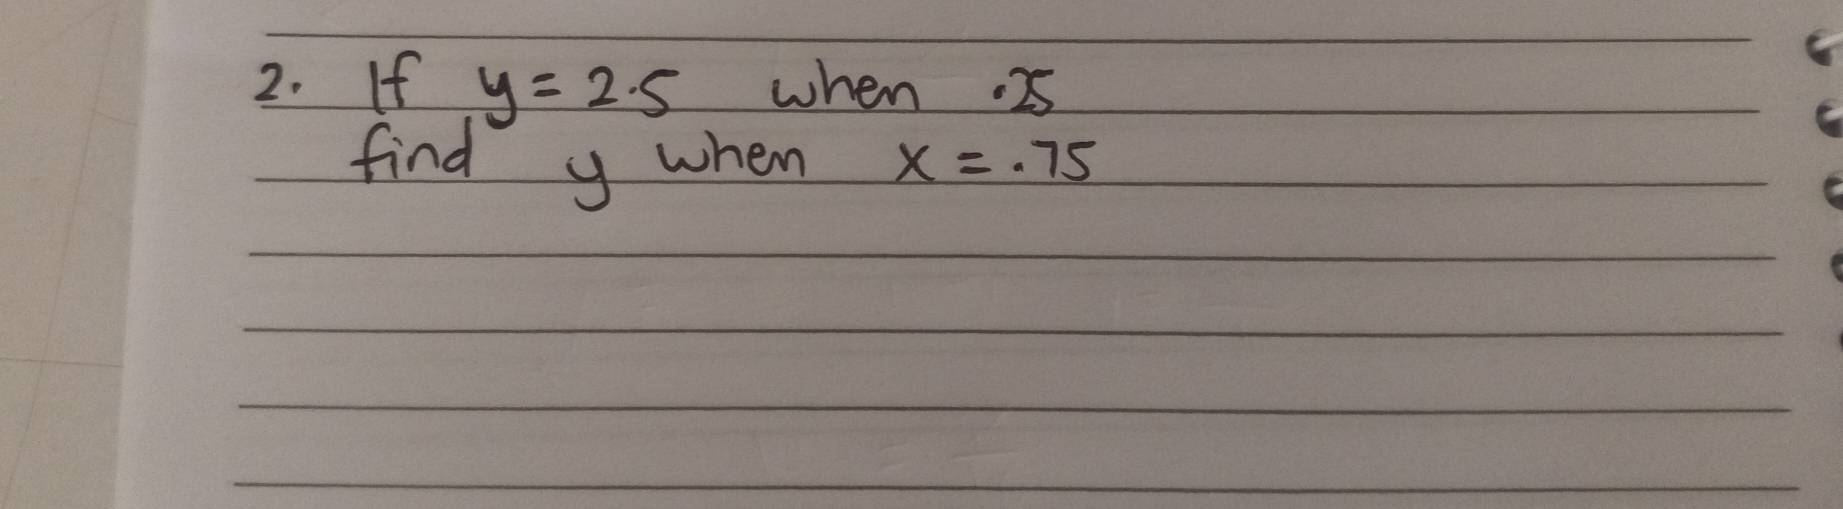 2. If y = 2.5 when .25
find y when x = .75